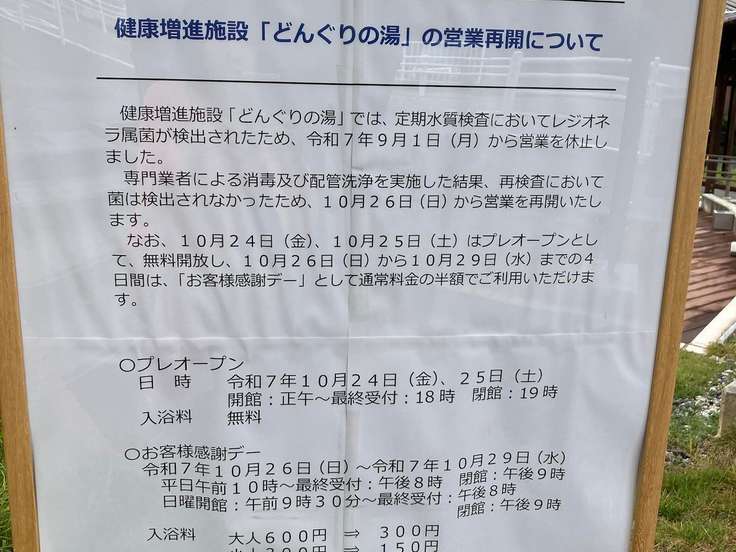 健康増進施設「どんぐりの湯」の営業再開について
健康増進施設「どんぐりの湯」では、定期水質検査においてレジオネ
ラ属菌が検出されたため、令和7年9月1日(月)から営業を休止し
ました。
専門業者による消毒及び配管洗浄を実施した結果、再検査において
菌は検出されなかったため、10月26日(日)から営業を再開いたし
ます。
なお、10月24日(金)、10月25日(土)はプレオープンとし
て、無料開放し、10月26日(日)から10月29日(水)までの4
日間は、「お客様感謝デー」として通常料金の半額でご利用いただけま
す。
○プレオープン
日 時 令和7年10月24日(金)、25日(土)
開館:正午~最終受付:18時 閉館:19時
入浴料 無料
○お客様感謝デー
令和7年10月26日(日)~令和7年10月29日(水)
平日午前10時~最終受付:午後8時 閉館:午後9時
日曜開館:午前9時30分~最終受付:午後8時
閉館:午後9時
入浴料 大人600円 ⇒ 300円
300円 ⇒ 150円